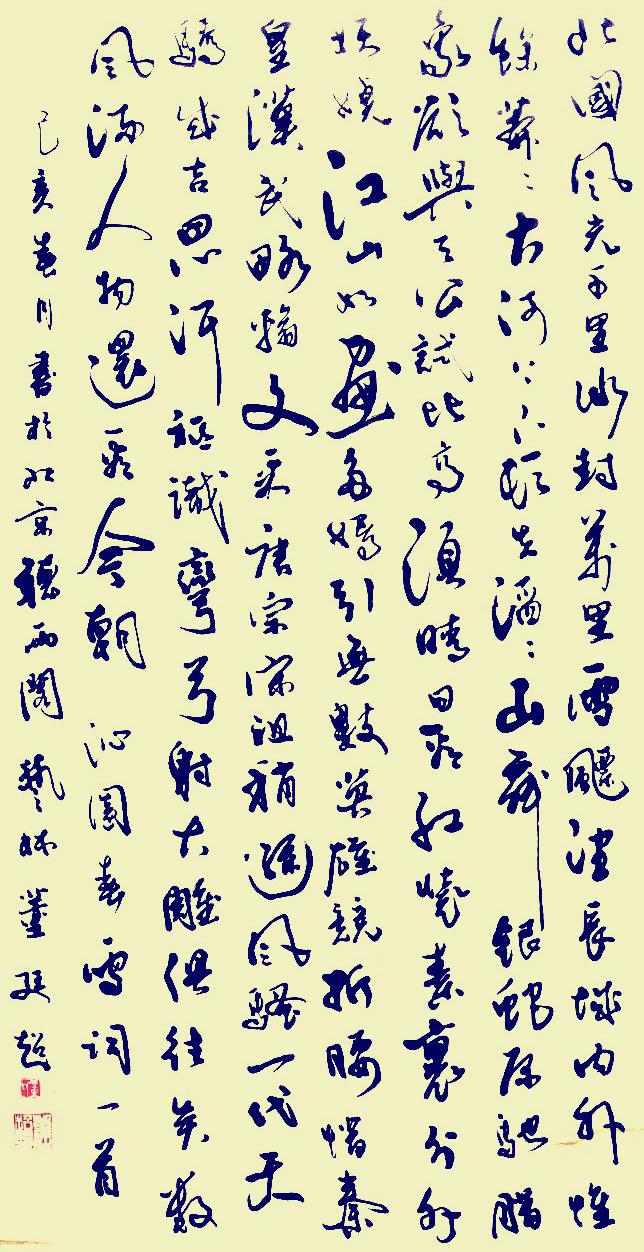 北國風光千里冰封萬里雪飄望長城內外惟
餘莽〻大河上下頓失滔〻山舞銀蛇原馳臘
象欲與天公試比高須晴日看紅素裹分外
妖嬈江山如畫多嬌引無數英雄競折腰惜秦
皇漢武略輸文采唐宗宋祖稍遜風騷一代天
驕成吉思汗祗識彎弓射大雕俱往矣數
風流人物還看今朝 沁園春雪詞一首
己亥春月書於北京聽雨閣 藝林董超